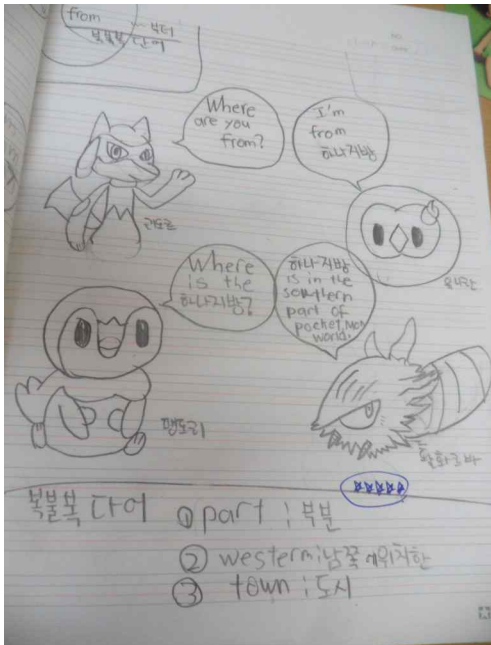 from - 부터
복불복 단어
Where
are you
from?
I'm
from
하나지방
리오르
유니란
Where
is the
하나지방?
하나지방
is in the
southern
part of
pocket Mon
world.
팽도리
활화르바
복불복 단어 ① part : 부분
② western : 남쪽에위치한
③ town : 도시